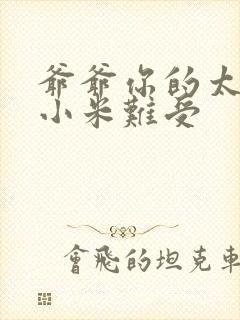 爺爺你的太
小米難受
會飛的坦克車